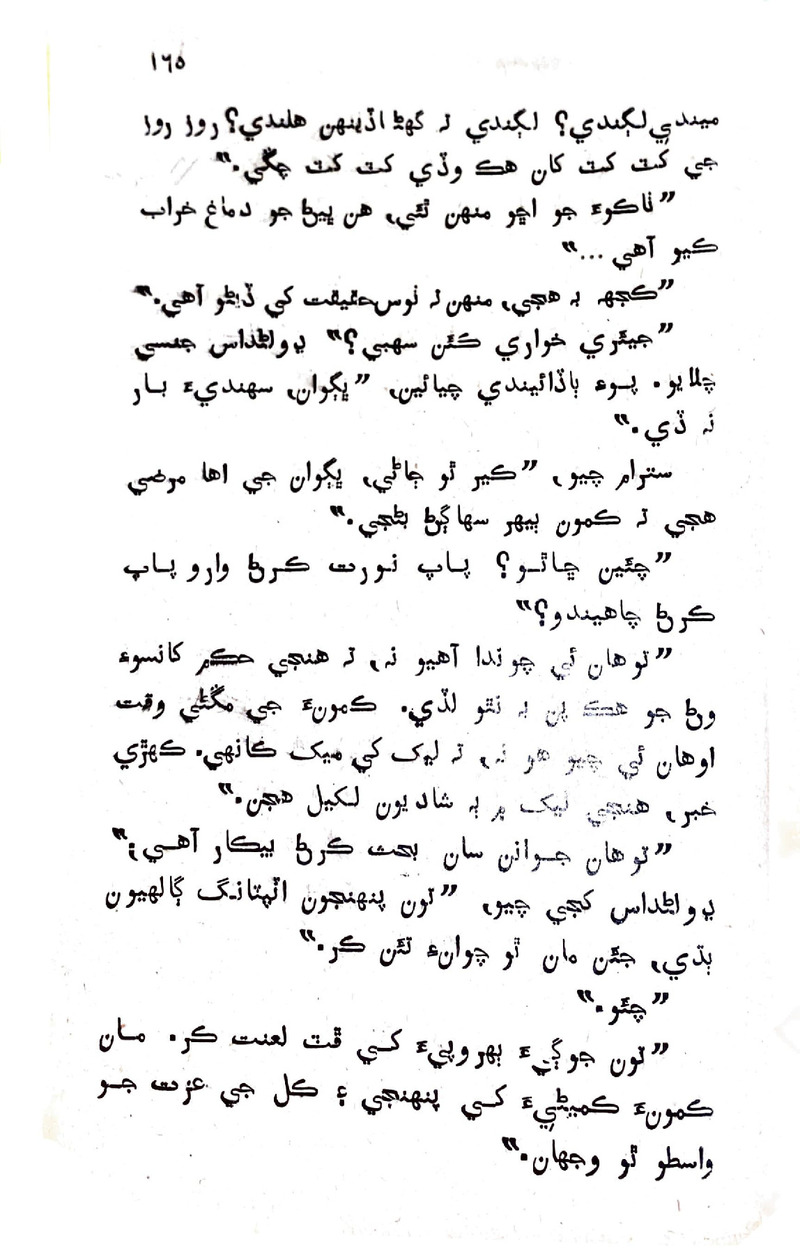 ١٦٥
ميندي لڳندي؟ لڳندي ته گهڻا ڏينهن هلندي؟ روز روز
جي کٽ کٽ کان هڪ وڏي کٽ کٽ چڱي.“
”ناڪوءَ جو اڇو منهن ٿئي، هن ڀيڻ جو دماغ خراب
ڪيو آهي...“
”ڪجهه به هجي، منهن ته ٺوس حقيقت کي ڏيڻو آهي.“
”جيئري خواري ڪٿن سهبي؟“ ڊولڻداس جنسي
چلايو. پوءِ ٻاڏائيندي چيائين، ”ڀڳوان، سهنديءَ بار
نه ڏي.“
سنترام چيو، ”ڪير ٿو ڄاڻي، ڀڳوان جي اها مرضي
هجي ته ڪمون ٻيهر سهاڳڻ بڻجي.“
”چئين ڇا ٿو؟ پاپ نورت ڪرڻ وارو پاپ
ڪرڻ چاهيندو؟“
”توهان ئي چوندا آهيو نه، ته هنجي حڪم کانسوءِ
وڻ جو هڪ پن به نٿو لڏي. ڪمونءَ جي مڱڻي وقت
اوهان ئي چيو هو نه، ته ليک کي ميک ڪانهي. ڪهڙي
خبر، هنجي ليک ۾ ٻه شاديون لکيل هجن.“
”توهان جوانن سان بحث ڪرڻ بيڪار آهي؛“
ڊولڻداس کجي چيو، ”تون پنهنجون اٽپٽانگ ڳالهيون
ٻڌي، جئن مان ٿو چوانءِ تئن ڪر.“
”چئو.“
”تون جوڳيءَ بهروپيءَ کي ڦٽ لعنت ڪر. مان
ڪمونءَ ڪميڻيءَ کي پنهنجي ۽ ڪل جي عزت جو
واسطو ٿو وجهان.“